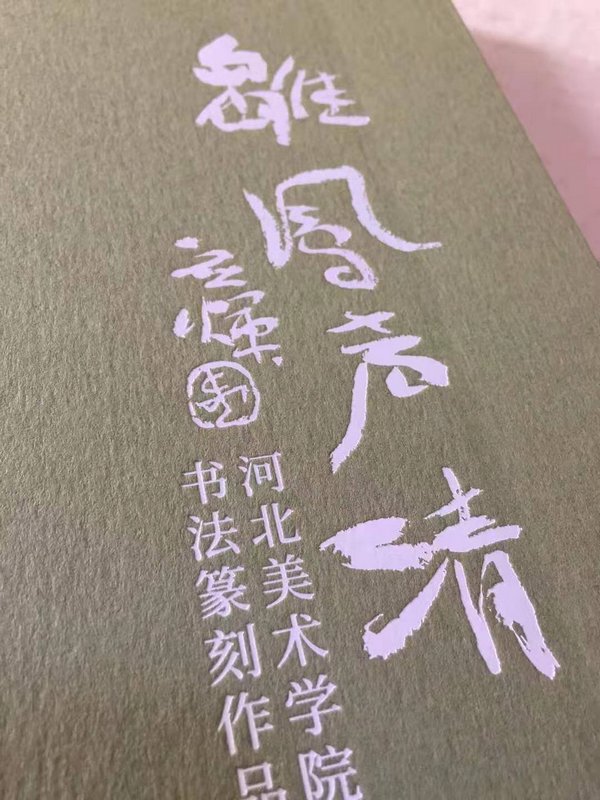 雏凤声清
立辉
河北美术学院
书法篆刻作品